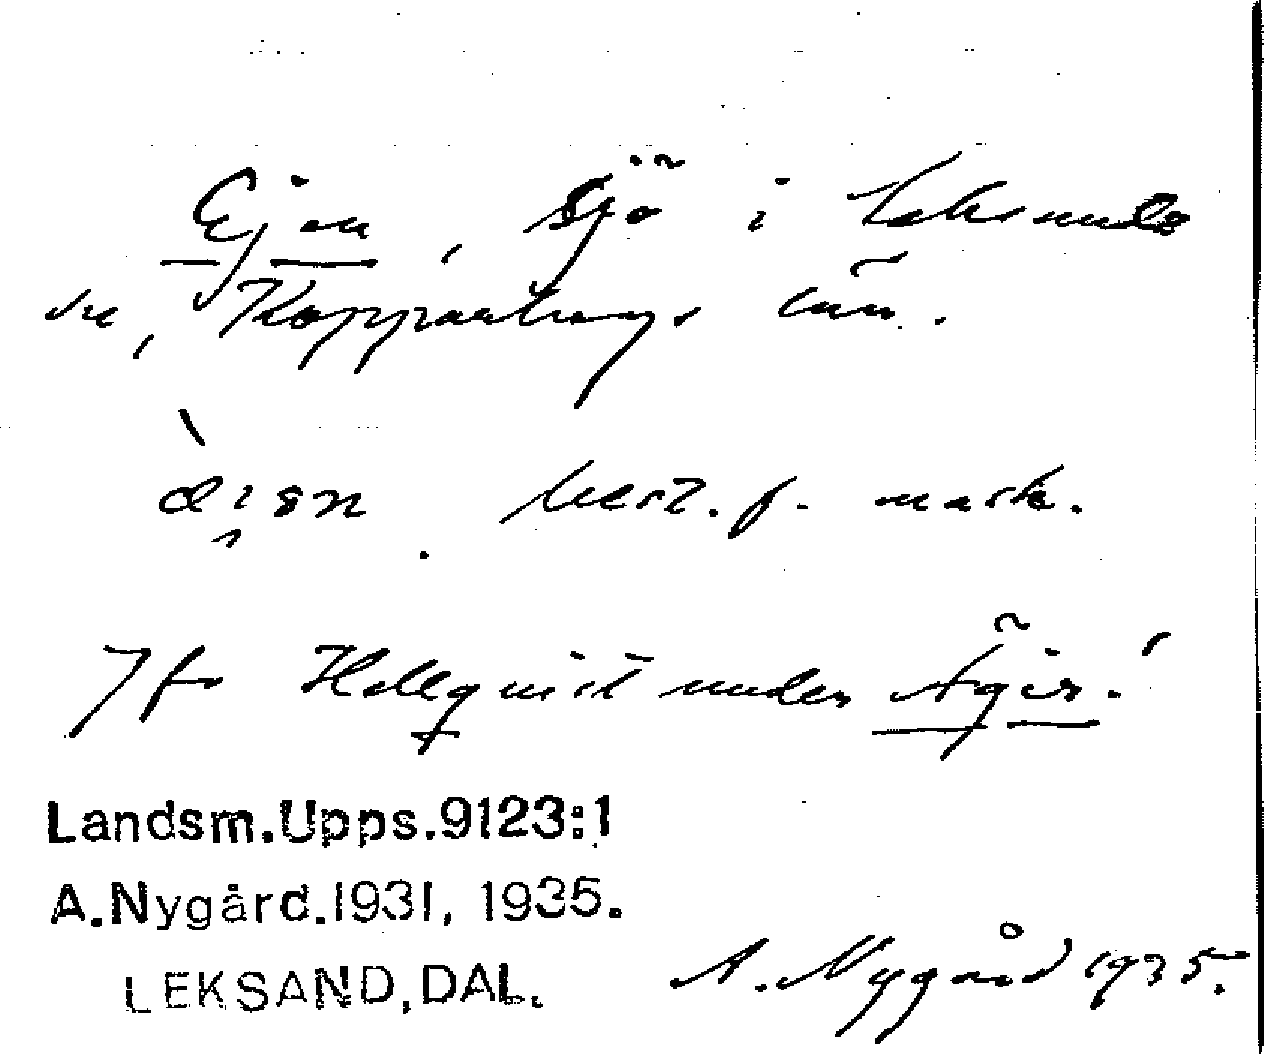 Ejen, sjö i Leksands
sn, Kopparbergs län.
best. f. mask.
Jfr Hellquist under Ägir!
Landsm.Upps.9123:1
A.Nygård.1931, 1935.
LEKSAND,DAL.
A. Nygård 1935.